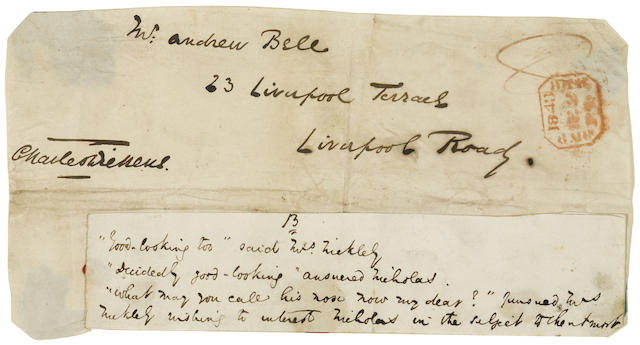 Mr. Andrew Bell
23 Liverpool Terrace
Liverpool Road.
Charles Dickens.
1843
13
"Good-looking too" said Mrs Nickleby
"Decidedly good-looking" answered Nicholas.
"What may you call his nose now my dear?" pursued Mrs
Nickleby wishing to interest Nicholas in the subject to the utmost